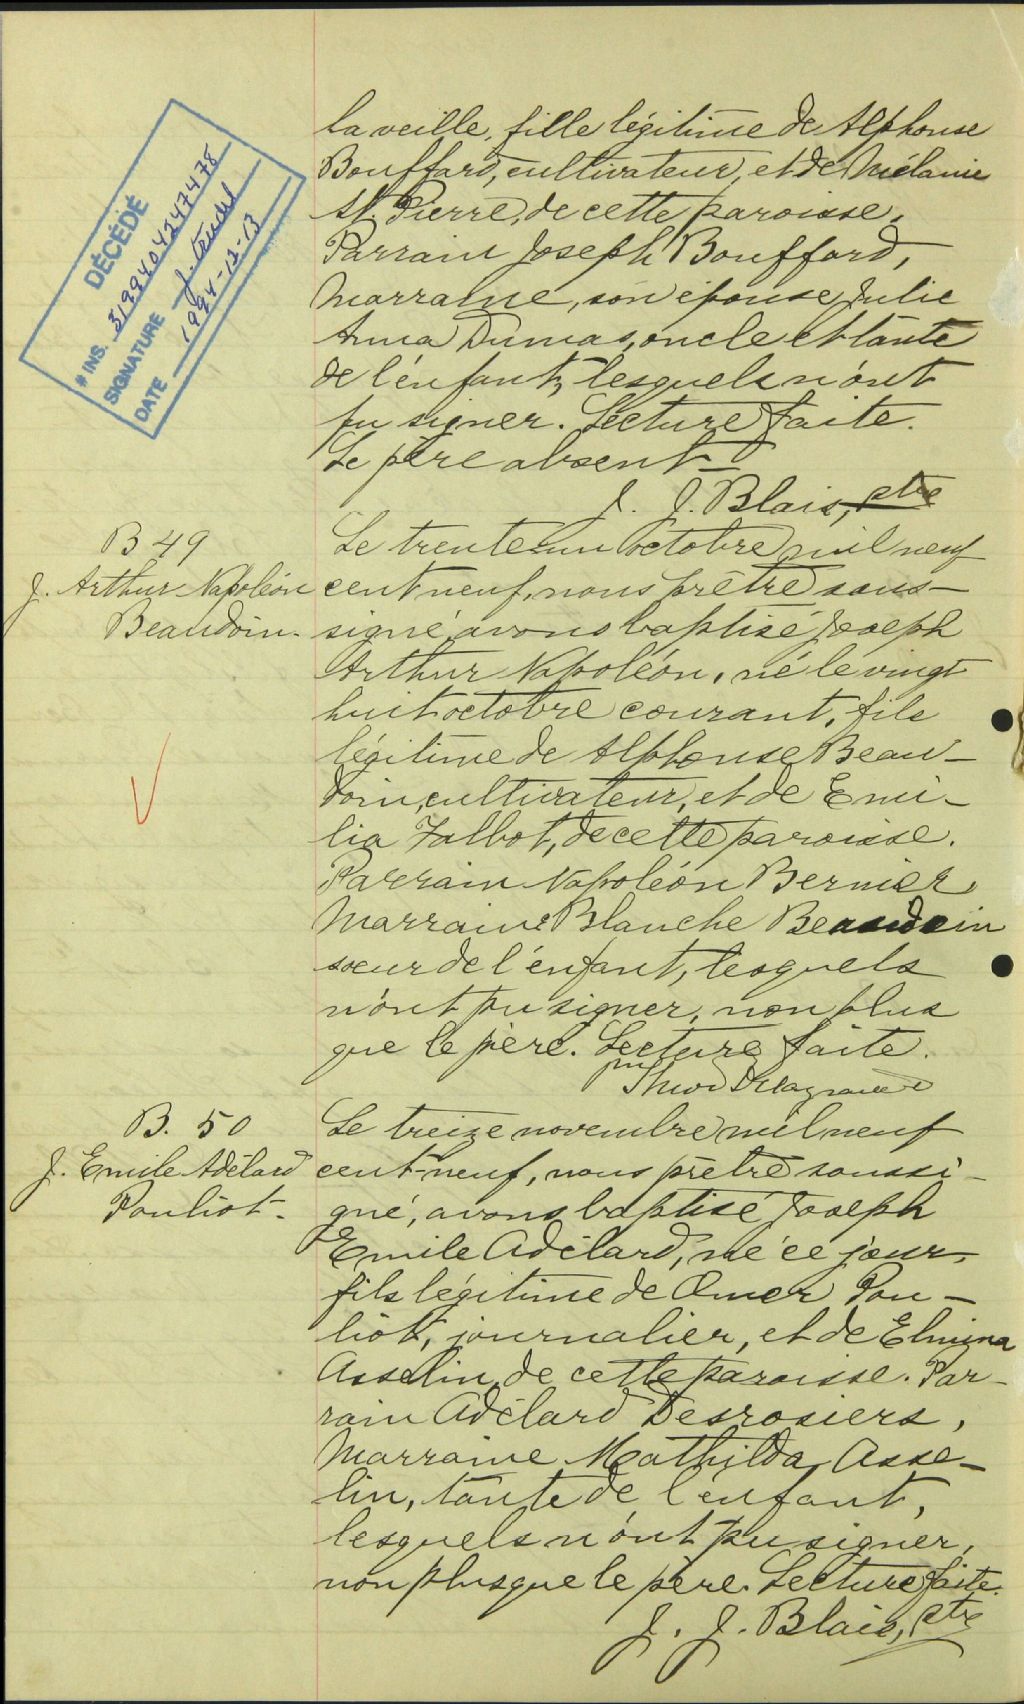 la veille, fille légitime de Alphonse
Bouffard, cultivateur, et de Mélanie
St. Pierre, de cette paroisse.
Parrain Joseph Bouffard,
Marraine, son épouse Julie
Anna Dumas, oncle et tante
de l'enfant, lesquels n'ont
pu signer. Lecture faite.
Le père absent
J. J. Blais, ptre
DÉCÉDÉ
# INS. 3199404247478
SIGNATURE
DATE 1994-12-13
B 49
J. Arthur Napoléon
Beaudoin.
Le trente-un octobre mil neuf
cent neuf, nous prêtre sous-
signé, avons baptisé Joseph
Arthur Napoléon, né le vingt
huit octobre courant, fils
légitime de Alphonse Beau-
doin, cultivateur, et de Emi-
lia Talbot, de cette paroisse.
Parrain Napoléon Bernier
Marraine Blanche Beaudoin
soeur de l'enfant, lesquels
n'ont pu signer, non plus
que le père. Lecture faite.
B. 50
J. Emile Adélard
Pouliot.
Le treize novembre mil neuf
cent-neuf, nous prêtre soussi-
gné, avons baptisé Joseph
Emile Adélard, né ce jour,
fils légitime de Omer Pou-
liot, journalier, et de Elmina
Asselin, de cette paroisse. Par-
rain Adélard Desrosiers,
Marraine Mathilda Asse-
lin, tante de l'enfant,
lesquels n'ont pu signer,
non plus que le père. Lecture faite.
J. J. Blais, ptre